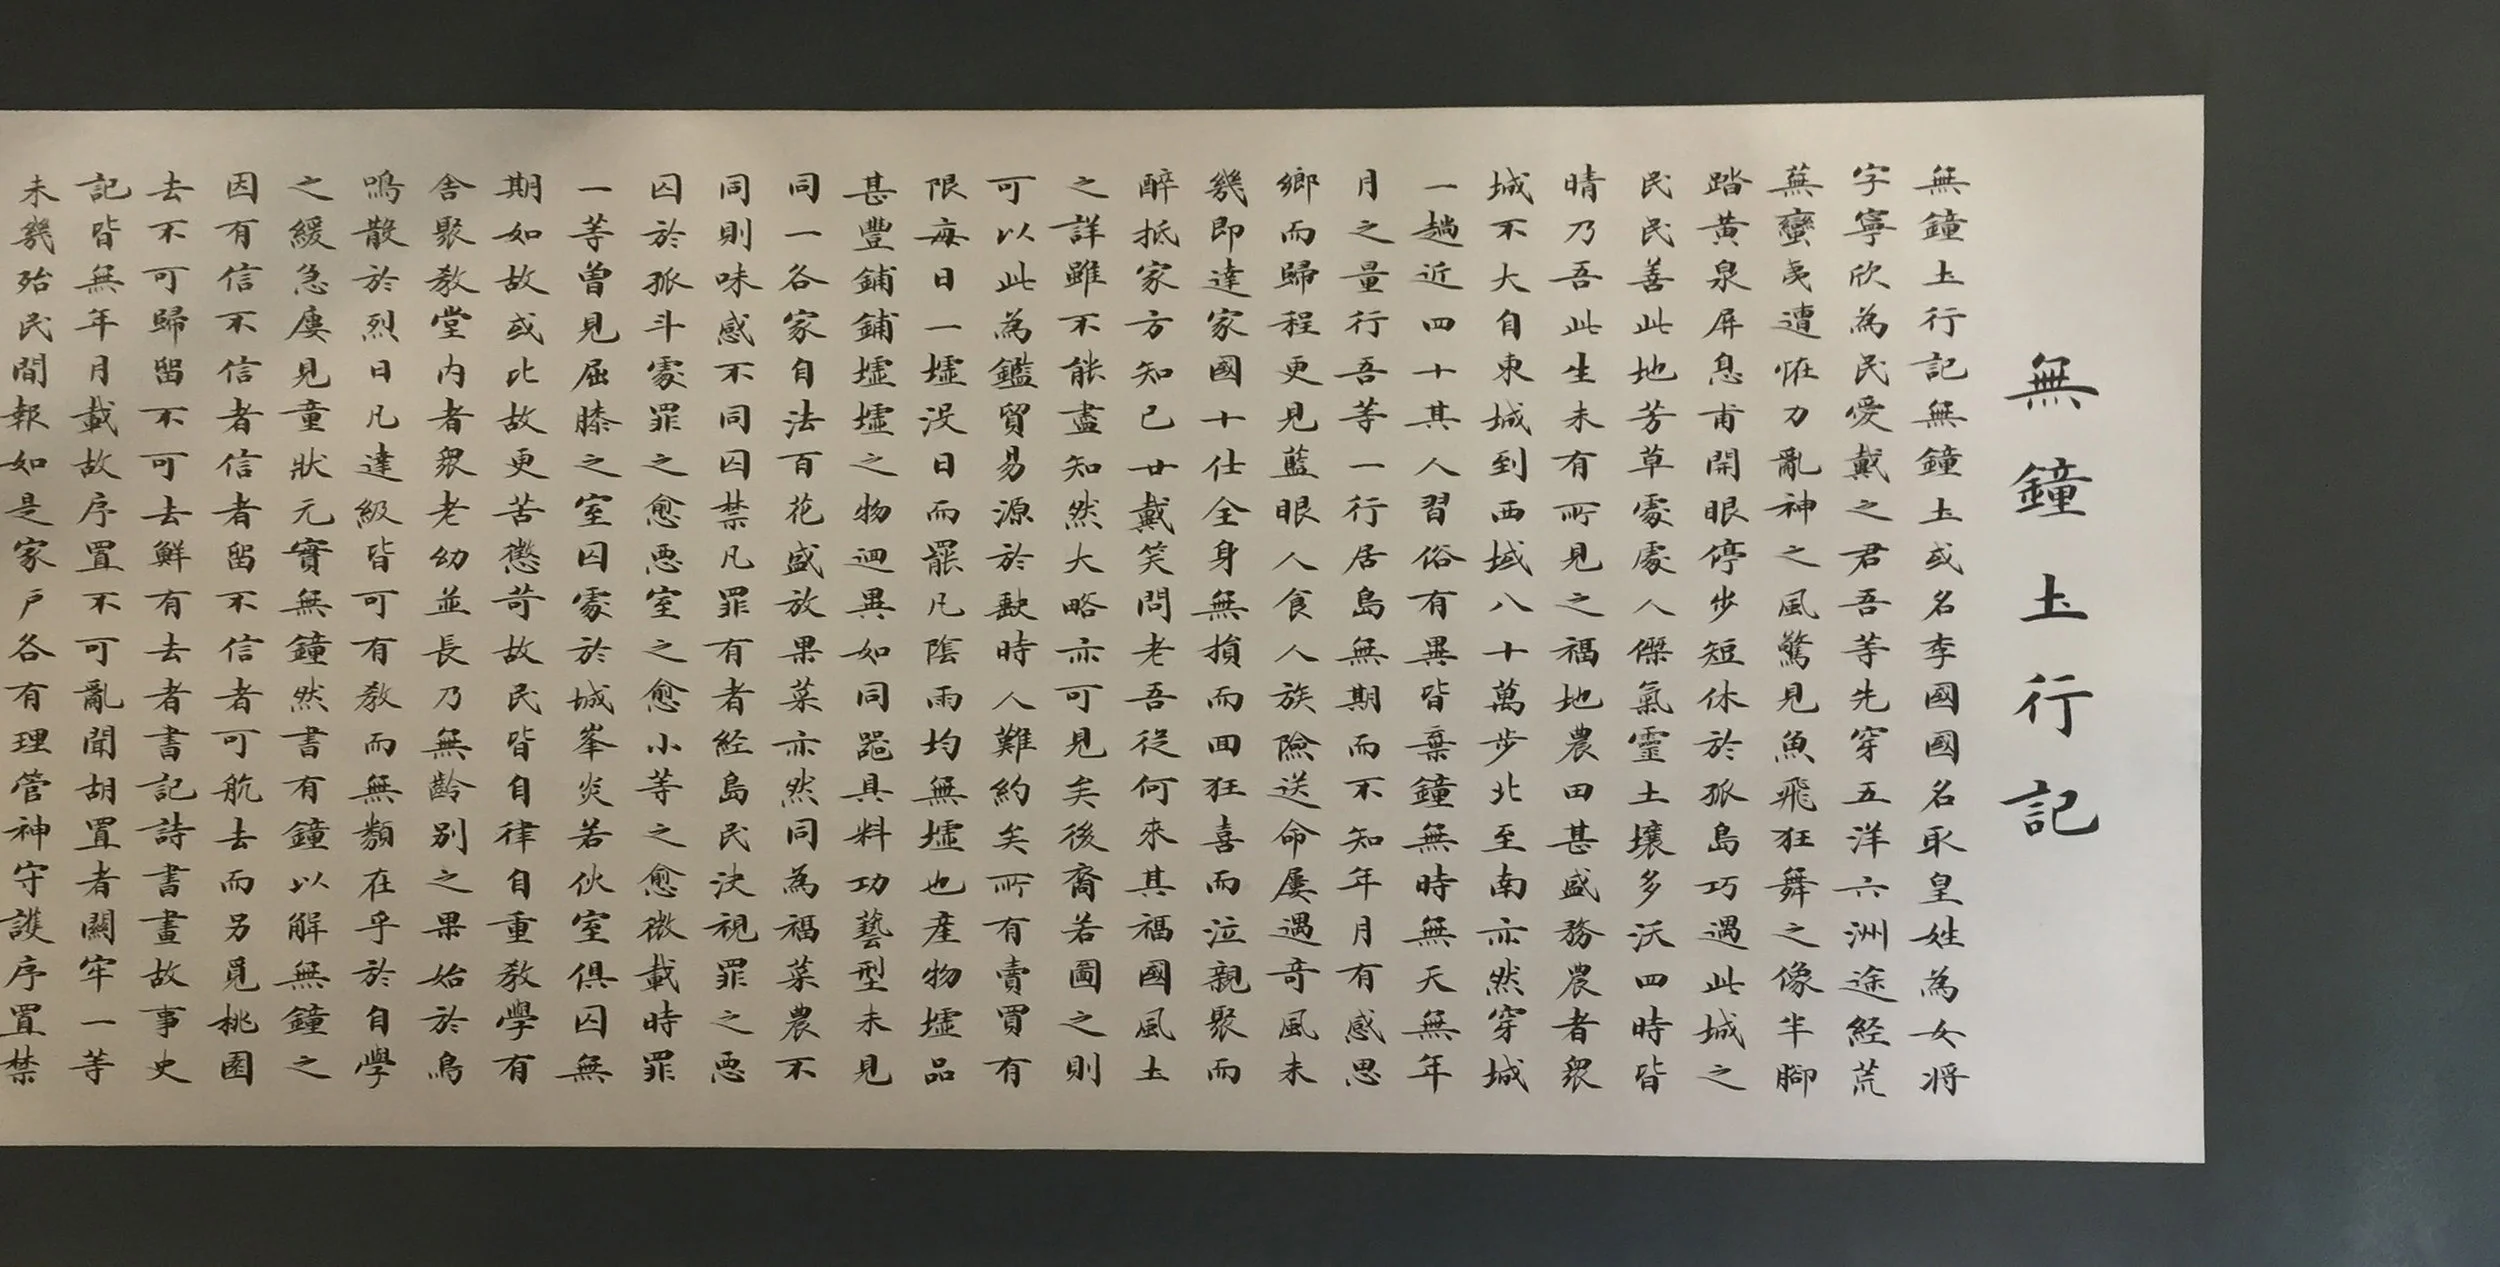 無鐘土行記
無鐘土行記無鐘土或名李國國名取皇姓為女將
字寧欣為民愛戴之君吾等先穿五洋六洲途経荒
蕪蠻夷遭恠力亂神之風驚見魚飛狂舞之像半腳
踏黃泉屏息甫開眼停步短休於孤島巧遇此城之
民民善此地芳草處處人傑氣靈土壤多沃四時皆
晴乃吾此生未有所見之福地農田甚盛務農者眾
城不大自東城到西域八十萬步北至南亦然穿城
一趟近四十其人習俗有異皆棄鐘無時無天無年
月之量行吾等一行居島無期而不知年月有感思
鄉而歸程更見藍眼人食人族險送命屢遇奇風未
幾即達家國十仕全身無損而回狂喜而泣親聚而
醉抵家方知已廿戴笑問老吾從何來其福國風土
之詳雖不能盡知然大略亦可見矣後裔若圖之則
可以此為鑑貿易源於歃時人難約矣所有賣買有
限每日一墟沒日而罷凡陰雨均無墟也產物墟品
甚豐鋪鋪墟墟之物迥異如同器具料功藝型未見
同一各家自法百花盛放果菜亦然同為福菜農不
同則味感不同囚禁凡罪有者経島民決視罪之惡
囚於孤斗處罪之愈惡室之愈小等之愈微載時罪
一等曾見屈膝之室囚處於城峯炎若伙室俱囚無
期如故或比故更苦懲苛故民皆自律自重教學有
舍聚教堂內者眾老幼並長乃無齡別之果始於鳥
鳴散於烈日凡達級皆可有教而無類在乎於自學
之緩急屢見童狀元實無鐘然書有鐘以解無鐘之
因有信不信者信者留不信者可航去而另覓桃園
去不可歸留不可去鮮有去者書記詩書畫故事史
記皆無年月載故序置不可亂聞胡置者關牢一等
未幾殆民間報如是家戶各有理管神守護序置禁